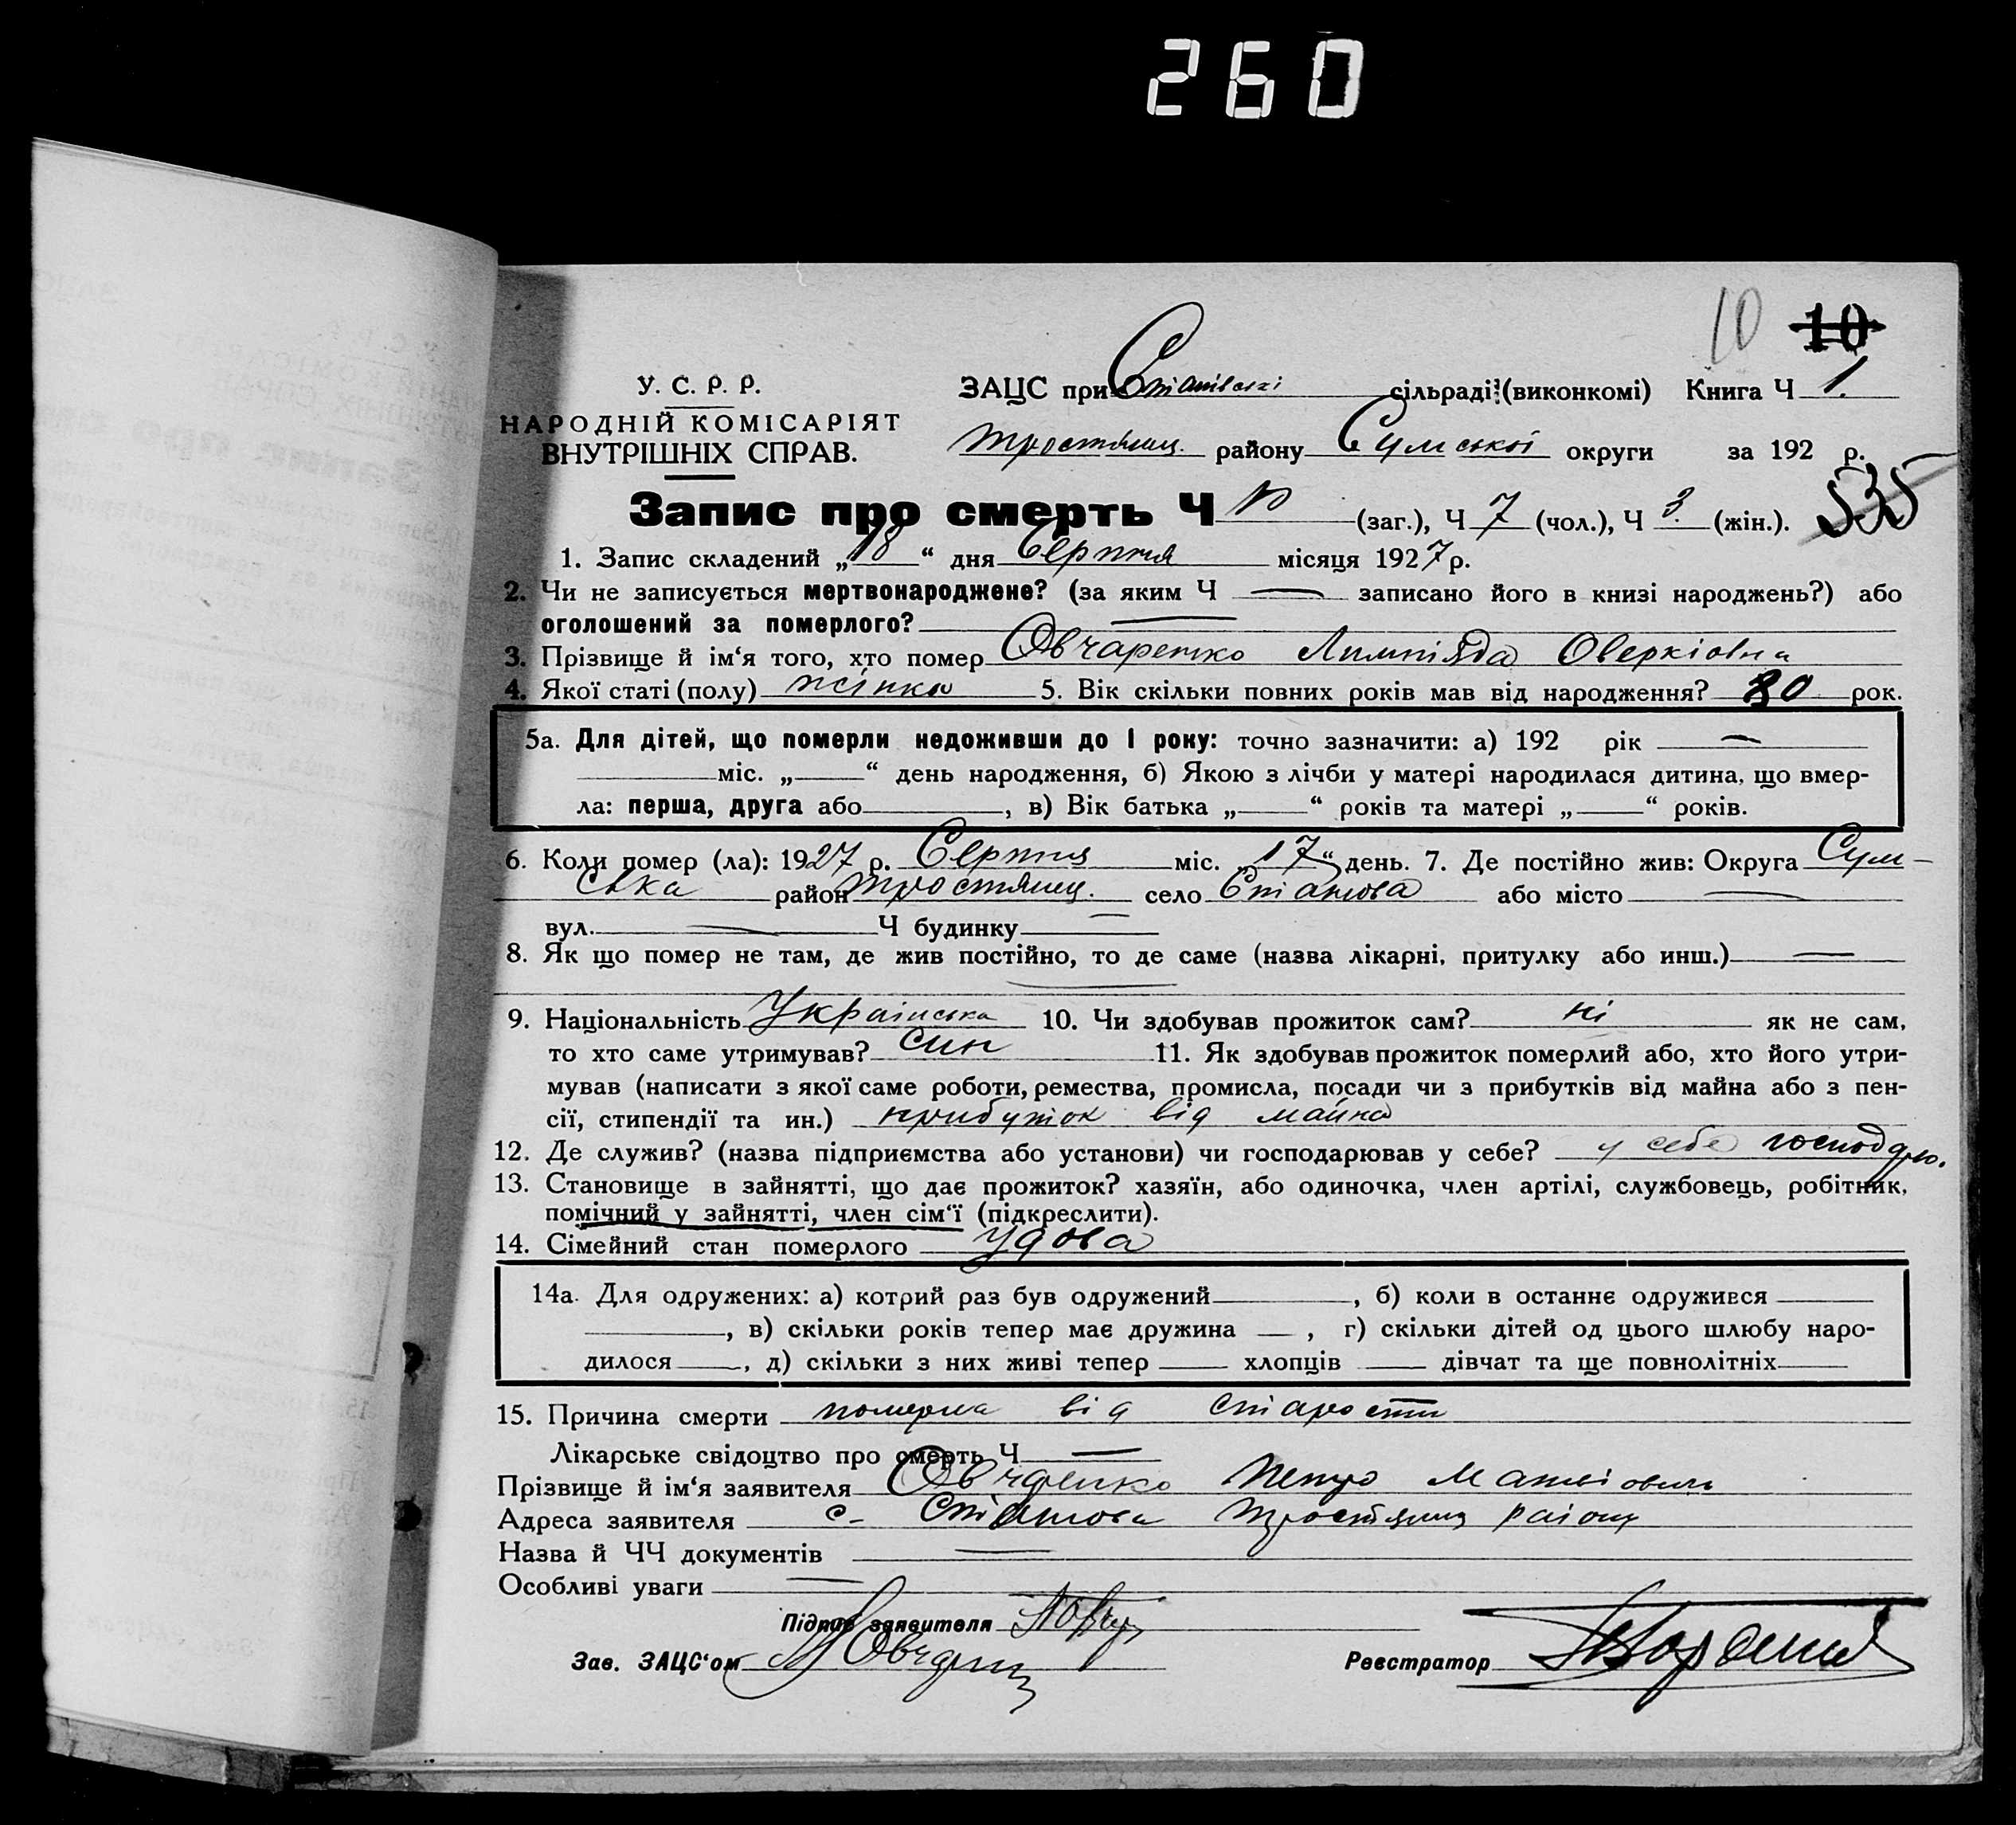 260
10 10
У. С. Р. Р.
НАРОДНІЙ КОМІСАРІЯТ
ВНУТРІШНІХ СПРАВ.
ЗАЦС при сільраді (виконкомі) Книга Ч 1.
Тростянец. району Сумської округи за 192 р.
535
Запис про смерть Ч 10 (заг.), Ч 7 (чол.), Ч 3 (жін.).
1. Запис складений „18“ дня Серпня місяця 1927 р.
2. Чи не записується мертвонароджене? (за яким Ч — записано його в книзі народжень?) або
оголошений за померлого? —
3. Прізвище й ім‘я того, хто помер Овчаренко Лимпіяда Оверківна
4. Якої статі (полу) жінка 5. Вік скільки повних років мав від народження? 80 рок.
5а. Для дітей, що померли недоживши до 1 року: точно зазначити: а) 192 рік —
міс. „ “ день народження, б) Якою з лічби у матері народилася дитина, що вмер-
ла: перша, друга або , в) Вік батька „ “ років та матері „ “ років.
6. Коли помер (ла): 1927 р. Серпня міс. „17“ день. 7. Де постійно жив: Округа Сум-
ська район Тростянец. село або місто —
вул. — Ч будинку —
8. Як що помер не там, де жив постійно, то де саме (назва лікарні, притулку або инш.) —
9. Національність Українська 10. Чи здобував прожиток сам? ні як не сам,
то хто саме утримував? син 11. Як здобував прожиток померлий або, хто його утри-
мував (написати з якої саме роботи, ремества, промисла, посади чи з прибутків від майна або з пен-
сії, стипендії та ин.) прибуток від майна
12. Де служив? (назва підприємства або установи) чи господарював у себе? у себе
13. Становище в зайнятті, що дає прожиток? хазяїн, або одиночка, член артілі, службовець, робітник,
помічний у зайнятті, член сім‘ї (підкреслити).
14. Сімейний стан померлого удова
14а. Для одружених: а) котрий раз був одружений , б) коли в останнє одружився
, в) скільки років тепер має дружина , г) скільки дітей од цього шлюбу наро-
дилося , д) скільки з них живі тепер хлопців дівчат та ще повнолітніх
15. Причина смерти померла від старости
Лікарське свідоцтво про смерть Ч —
Прізвище й ім‘я заявителя Овчаренко Петро Матвіович
Адреса заявителя с. Тростянец району
Назва й ЧЧ документів —
Особливі уваги —
Підпис заявителя
Зав. ЗАЦС‘ом
Реєстратор